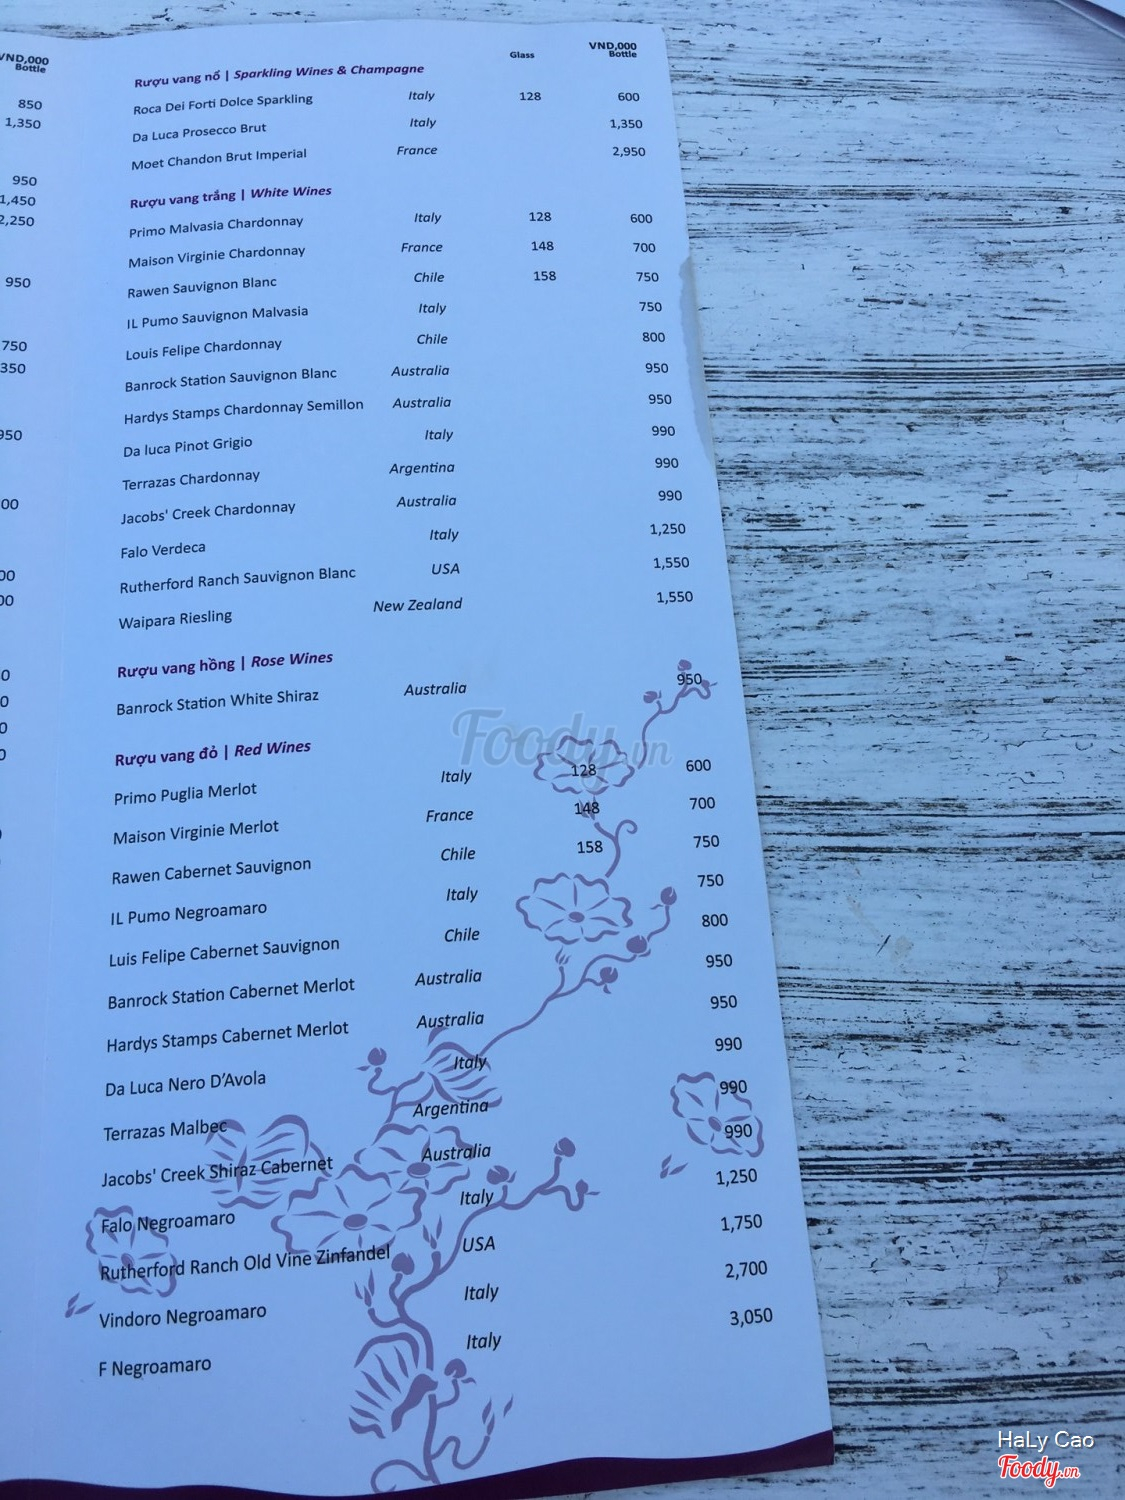 VND,000
Bottle
850
1,350
950
1,450
2,250
950
750
350
950
00
00
00
0
0
0
0
Glass
VND,000
Bottle
Rượu vang nổ | Sparkling Wines & Champagne
Roca Dei Forti Dolce Sparkling Italy 128 600
Da Luca Prosecco Brut Italy 1,350
Moet Chandon Brut Imperial France 2,950
Rượu vang trắng | White Wines
Primo Malvasia Chardonnay Italy 128 600
Maison Virginie Chardonnay France 148 700
Rawen Sauvignon Blanc Chile 158 750
IL Pumo Sauvignon Malvasia Italy 750
Louis Felipe Chardonnay Chile 800
Banrock Station Sauvignon Blanc Australia 950
Hardys Stamps Chardonnay Semillon Australia 950
Da luca Pinot Grigio Italy 990
Terrazas Chardonnay Argentina 990
Jacobs' Creek Chardonnay Australia 990
Falo Verdeca Italy 1,250
Rutherford Ranch Sauvignon Blanc USA 1,550
Waipara Riesling New Zealand 1,550
Rượu vang hồng | Rose Wines
Banrock Station White Shiraz Australia 950
Rượu vang đỏ | Red Wines
Primo Puglia Merlot Italy 128 600
Maison Virginie Merlot France 148 700
Rawen Cabernet Sauvignon Chile 158 750
IL Pumo Negroamaro Italy 750
Luis Felipe Cabernet Sauvignon Chile 800
Banrock Station Cabernet Merlot Australia 950
Hardys Stamps Cabernet Merlot Australia 950
Da Luca Nero D'Avola Italy 990
Terrazas Malbec Argentina 990
Jacobs' Creek Shiraz Cabernet Australia 990
Falo Negroamaro Italy 1,250
Rutherford Ranch Old Vine Zinfandel USA 1,750
Vindoro Negroamaro Italy 2,700
F Negroamaro Italy 3,050
Foody.vn
HaLy Cao
Foody.vn